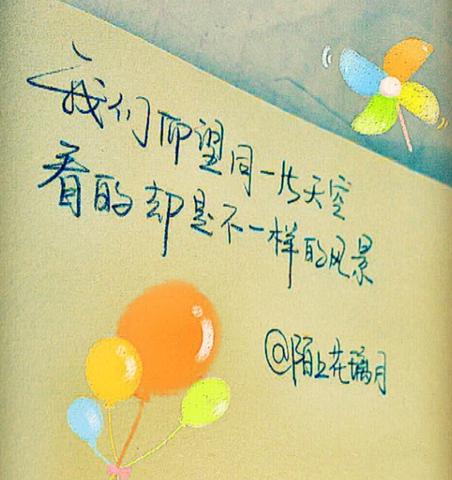 我们仰望同一片天空
看的却是不一样的风景
@陌上花璃月